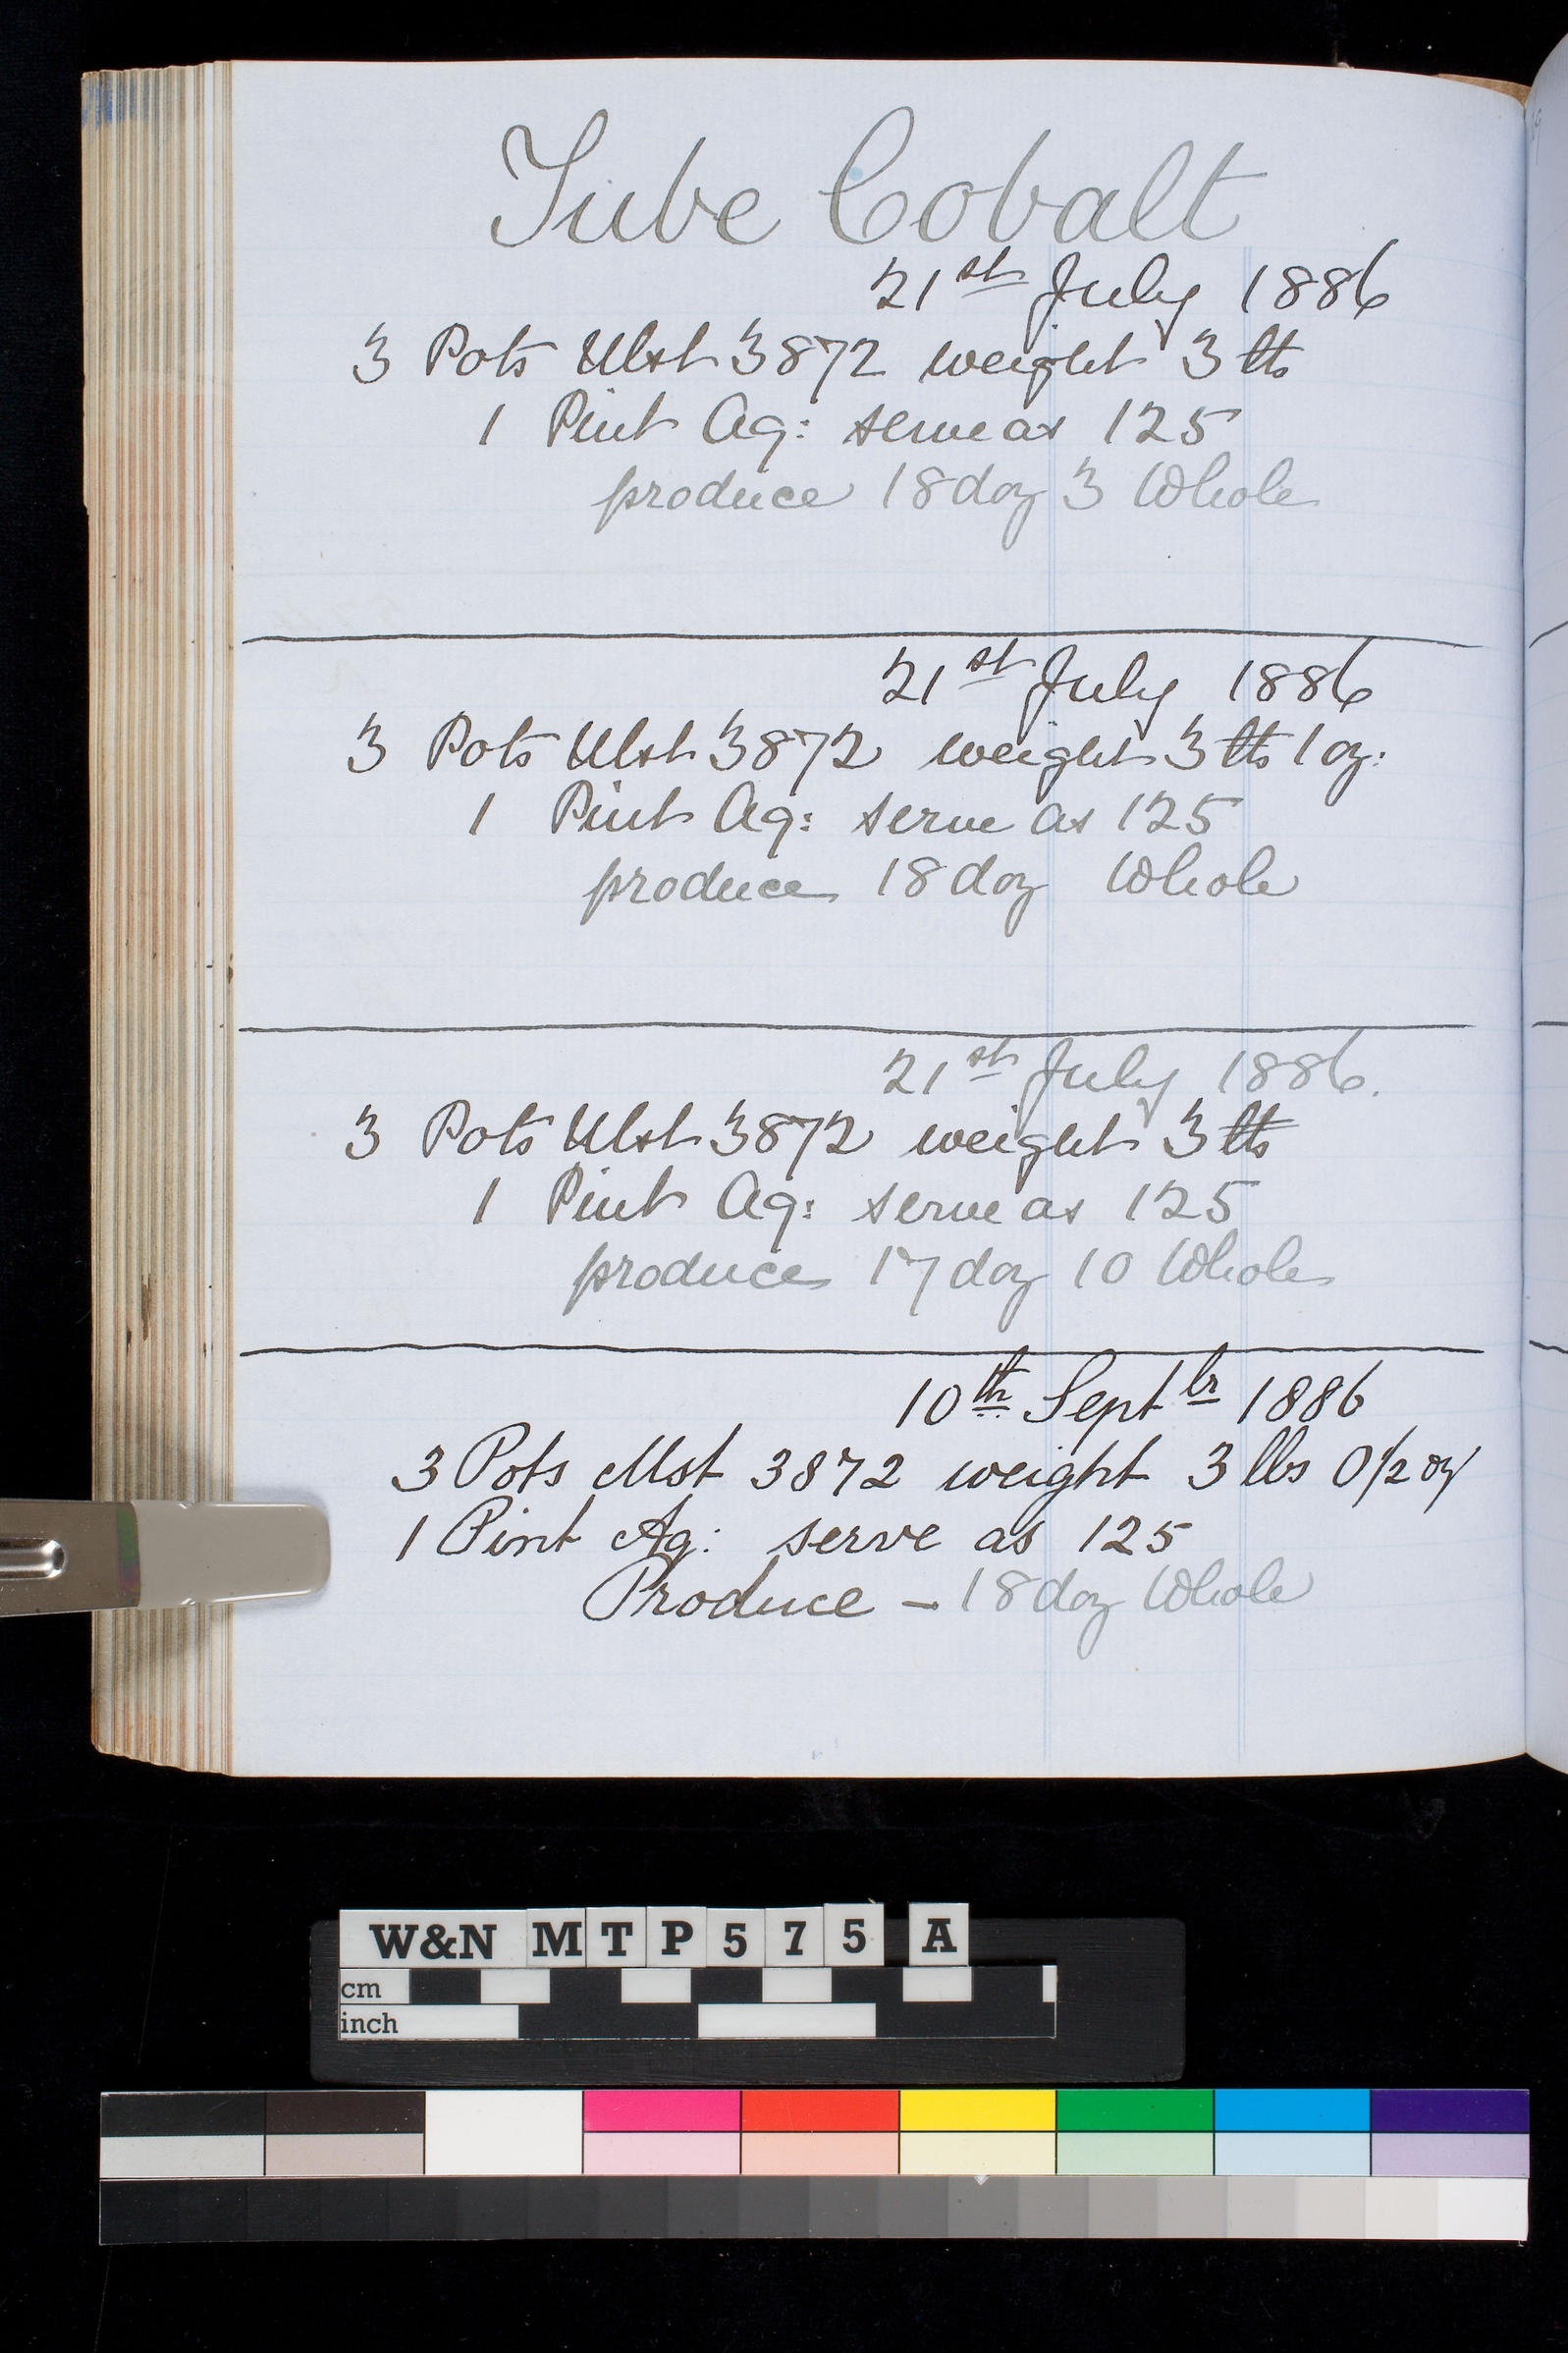 Tube Cobalt
21st July 1886
3 Pots Ulst 3872 weight 3 lbs
1 Pint Aq: serve as 125
produce 18 doz 3 Whole
21st July 1886
3 Pots Ulst 3872 weight 3 lbs 1 oz:
1 Pint Aq: serve as 125
produce 18 doz Whole
21st July 1886.
3 Pots Ulst 3872 weight 3 lbs
1 Pint Aq: serve as 125
produce 17 doz 10 Whole
10th Septbr 1886
3 Pots Ulst 3872 weight 3 lbs 0 1/2 oz
1 Pint Aq: serve as 125
Produce – 18 doz Whole
W&N MTP575 A
cm
inch